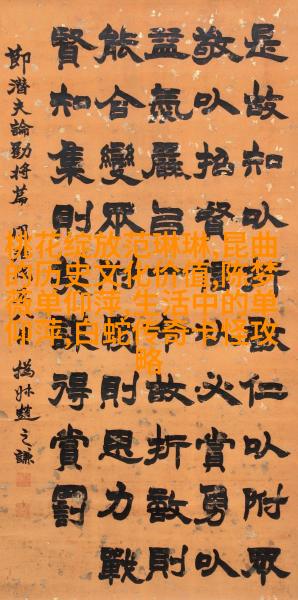 是故知以敵仁以附眾
敬以招必賞勇以
益氣嚴故折敵則
能合變眾恩力戰
賢知集則謀得賞罰
節潛夫論勸將篇
撝叔趙之謙
桃花绽放范琳琳,昆曲
的历史文化价值,陈梦
薇单仰萍,生活中的单
仰萍,白蛇传奇书怪攻
略